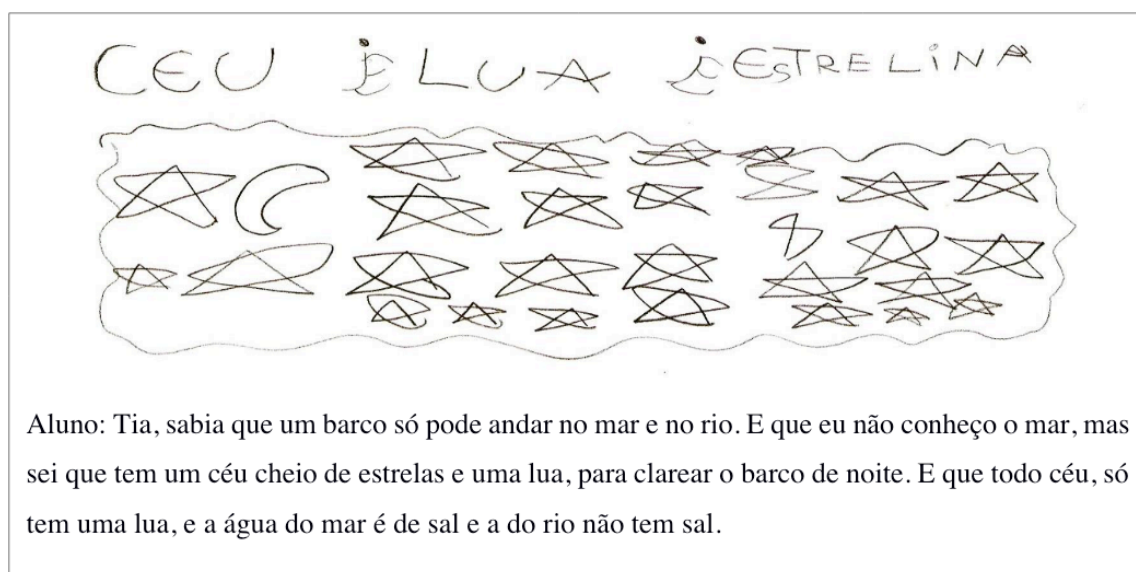 CEU E LUA E ESTRELINA
Aluno: Tia, sabia que um barco só pode andar no mar e no rio. E que eu não conheço o mar, mas
sei que tem um céu cheio de estrelas e uma lua, para clarear o barco de noite. E que todo céu, só
tem uma lua, e a água do mar é de sal e a do rio não tem sal.